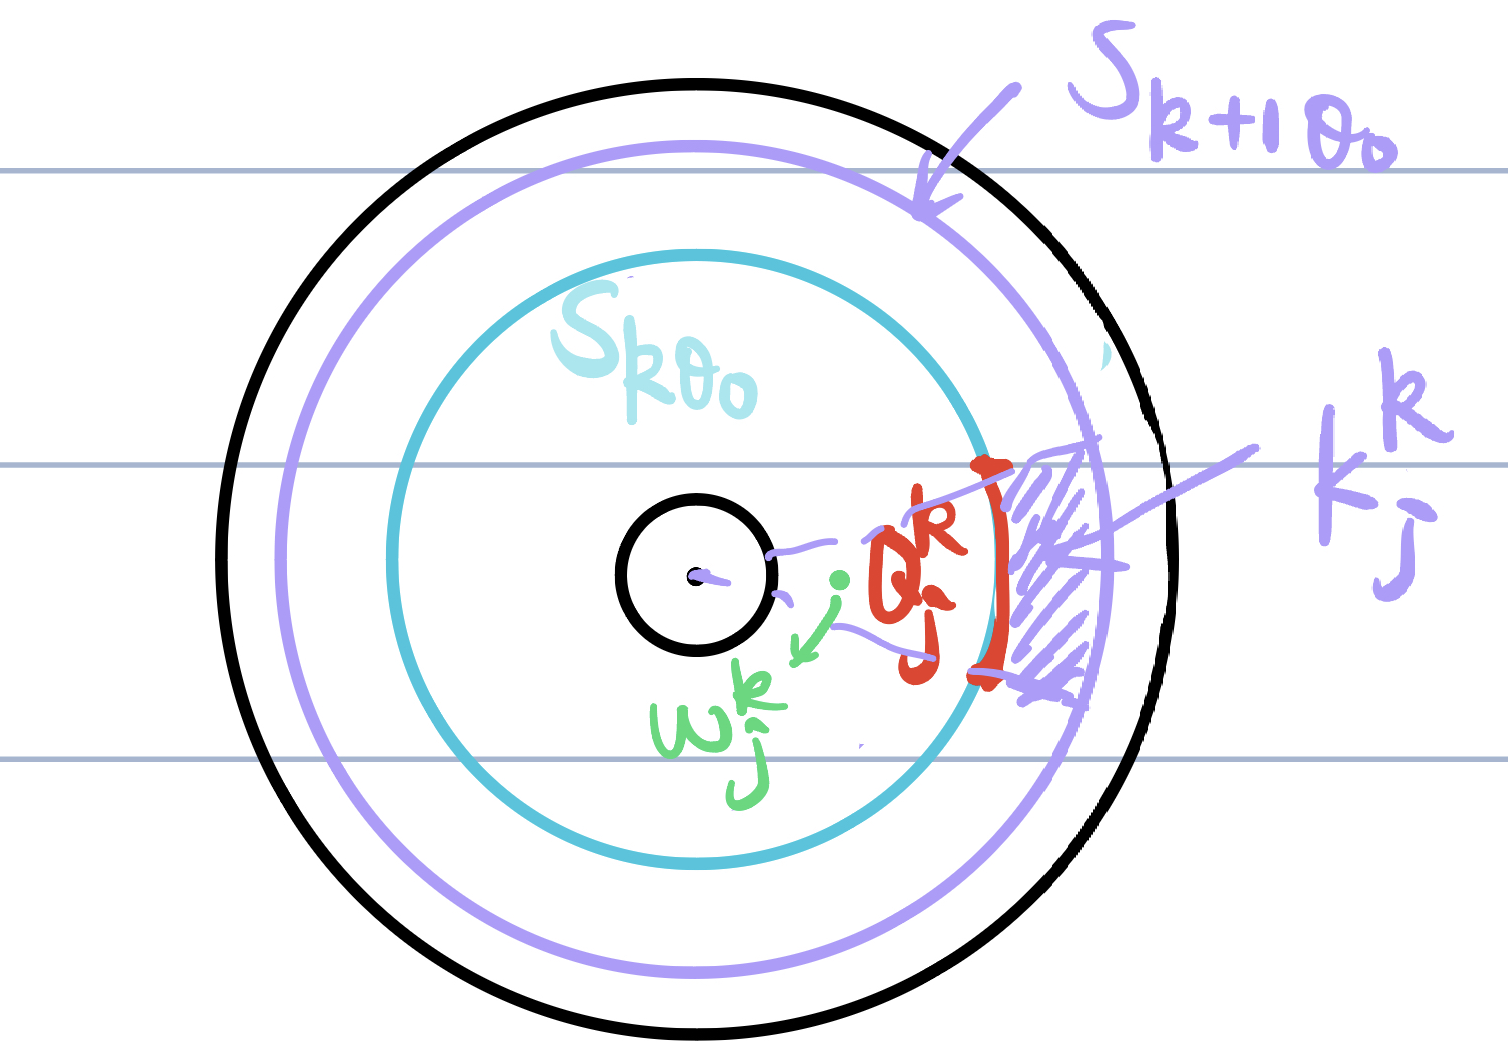 S_{k+1 θ_0}
S_{kθ_0}
K_j^k
Q_j^k
w_j^k